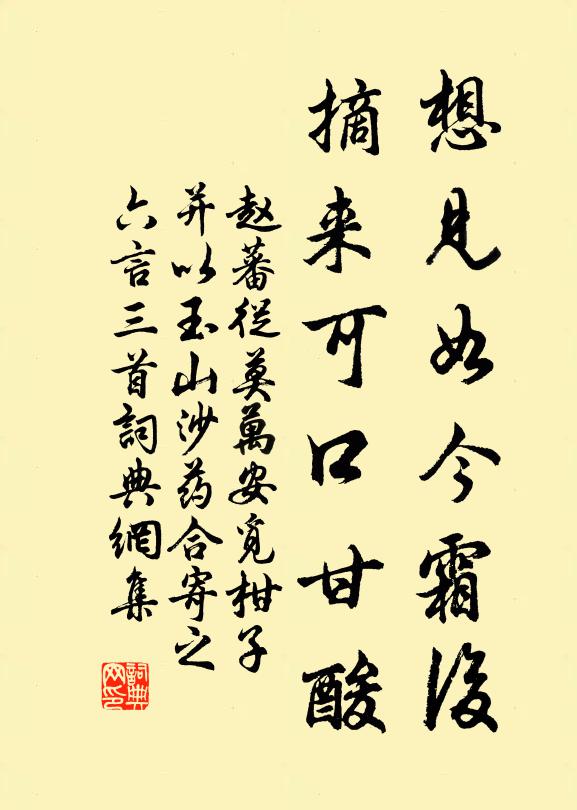 想見如今霜後
摘来可口甘酸
赵蕃從莫萬安覓柑子
并以玉山沙药合寄之
六言三首詞典網集
詞典
网印